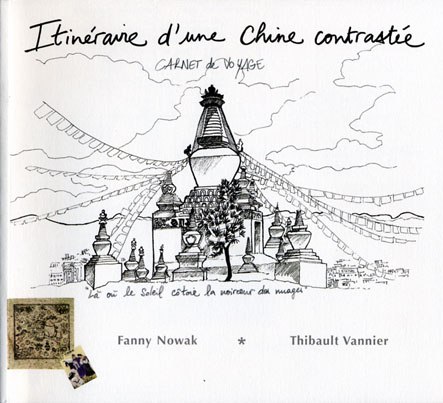 Itinéraire d'une Chine contrastée
CARNET de VOYAGE
Là où le Soleil côtoie la noirceur des nuages
Fanny Nowak * Thibault Vannier